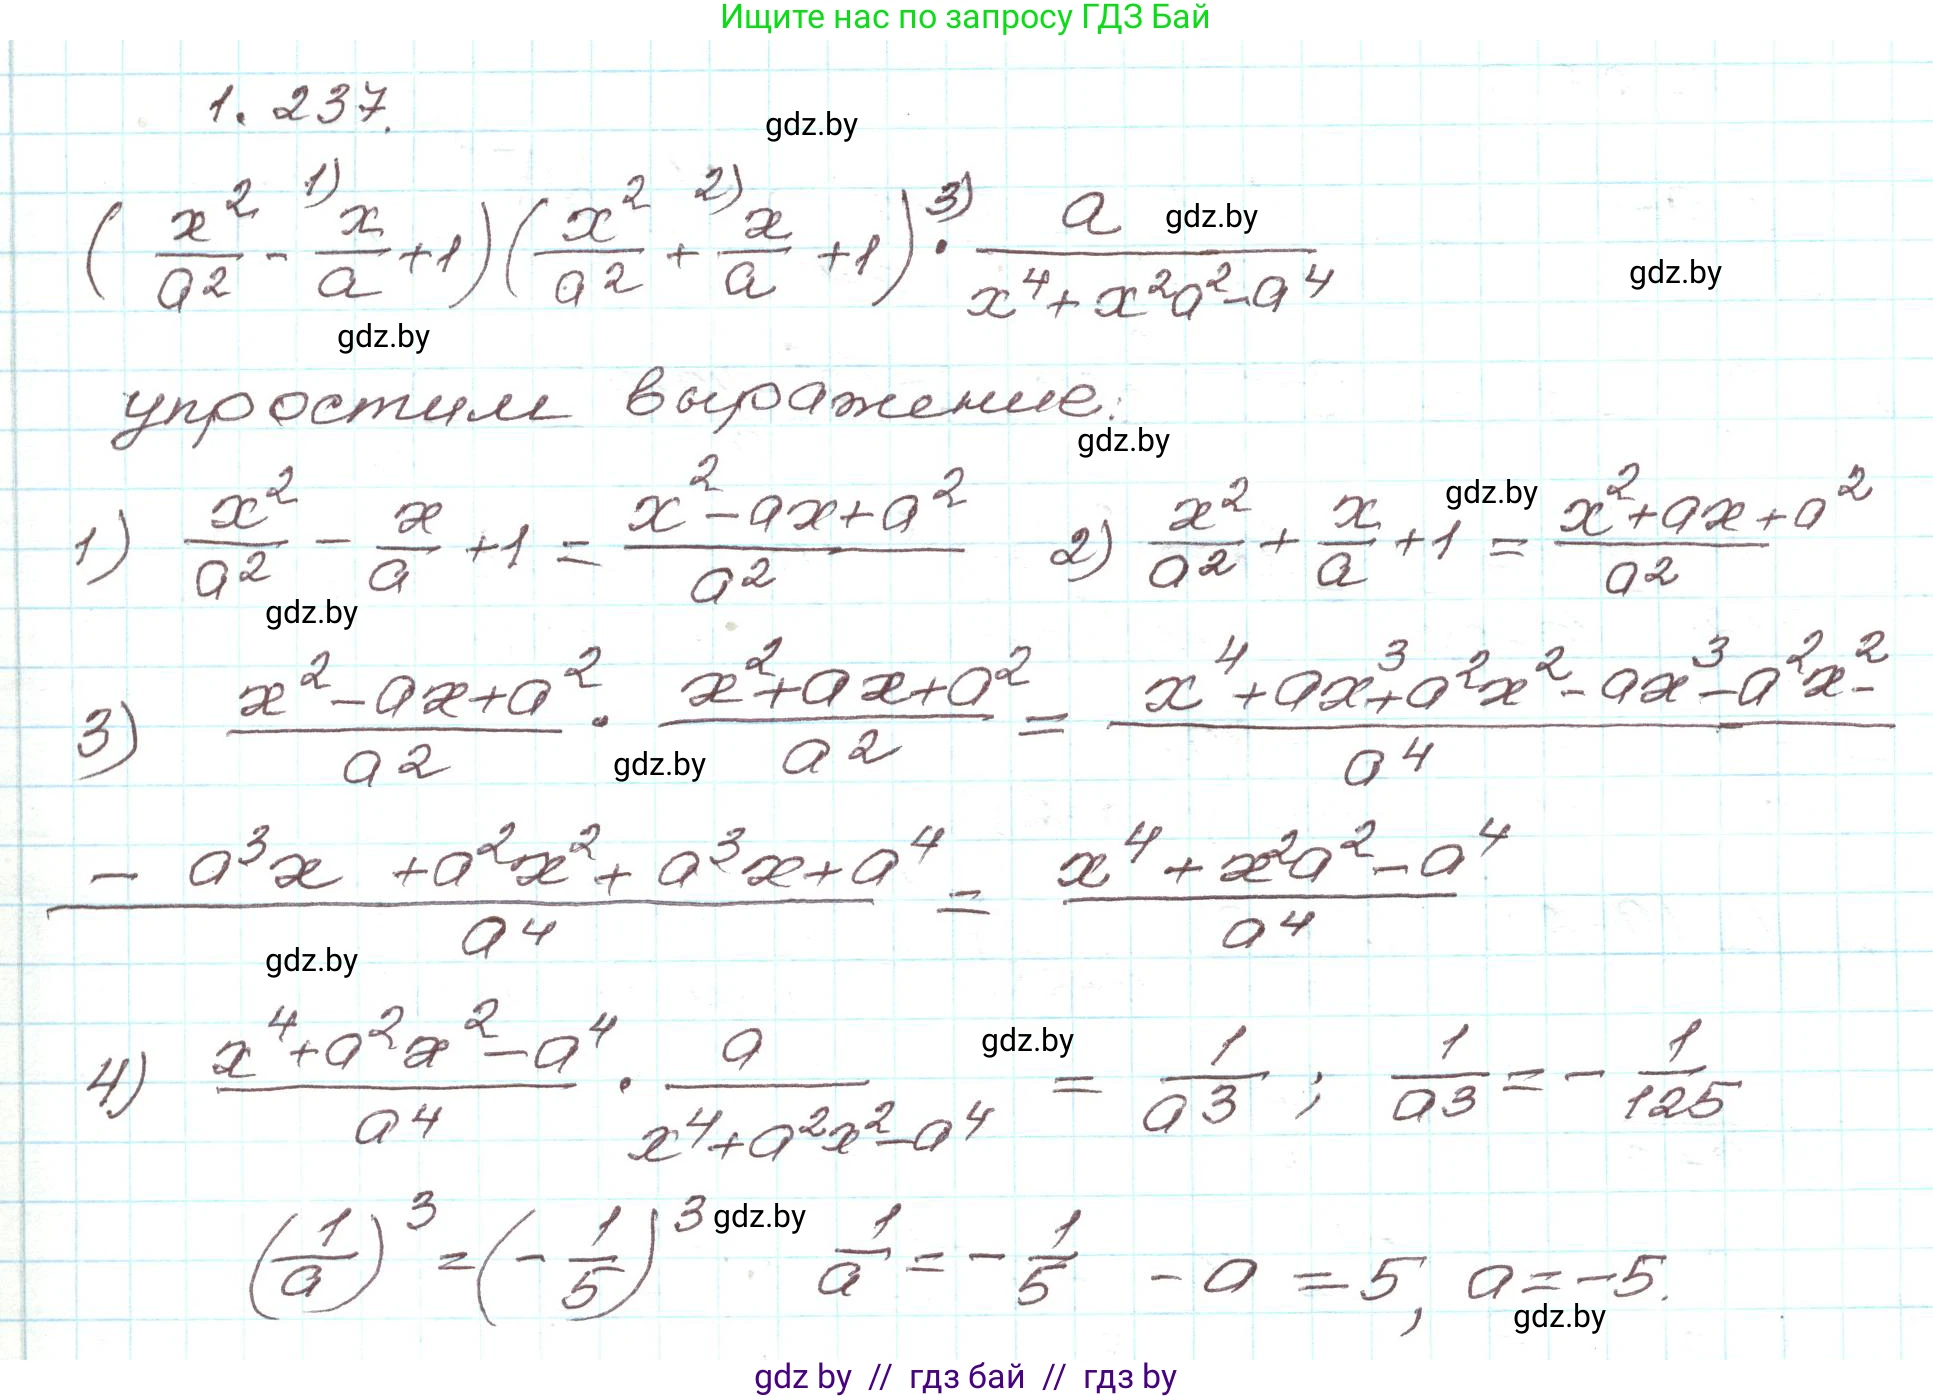 Ищите нас по запросу ГДЗ Бай
1.237.
gdz.by
(x²/a² - ¹⁾ x/a + 1)(x²/a² + ²⁾ x/a + 1) ·³⁾ a/(x⁴ + x²a² - a⁴)
gdz.by
gdz.by
gdz.by
упростим выражение:
gdz.by
1) x²/a² - x/a + 1 = (x² - ax + a²)/a² 2) x²/a² + x/a + 1 = (x² + ax + a²)/a²
gdz.by
gdz.by
3) (x² - ax + a²)/a² · (x² + ax + a²)/a² = (x⁴ + ax³ + a²x² - ax³ - a²x² -)/a⁴
gdz.by
(- a³x + a²x² + a³x + a⁴)/a⁴ = (x⁴ + x²a² - a⁴)/a⁴
gdz.by
4) (x⁴ + a²x² - a⁴)/a⁴ · a/(x⁴ + a²x² - a⁴) = 1/a³ ; 1/a³ = - 1/125
gdz.by
(1/a)³ = (- 1/5)³ 1/a = - 1/5 - a = 5, a = -5.
gdz.by
gdz.by
gdz by // гдз бай // гдз by